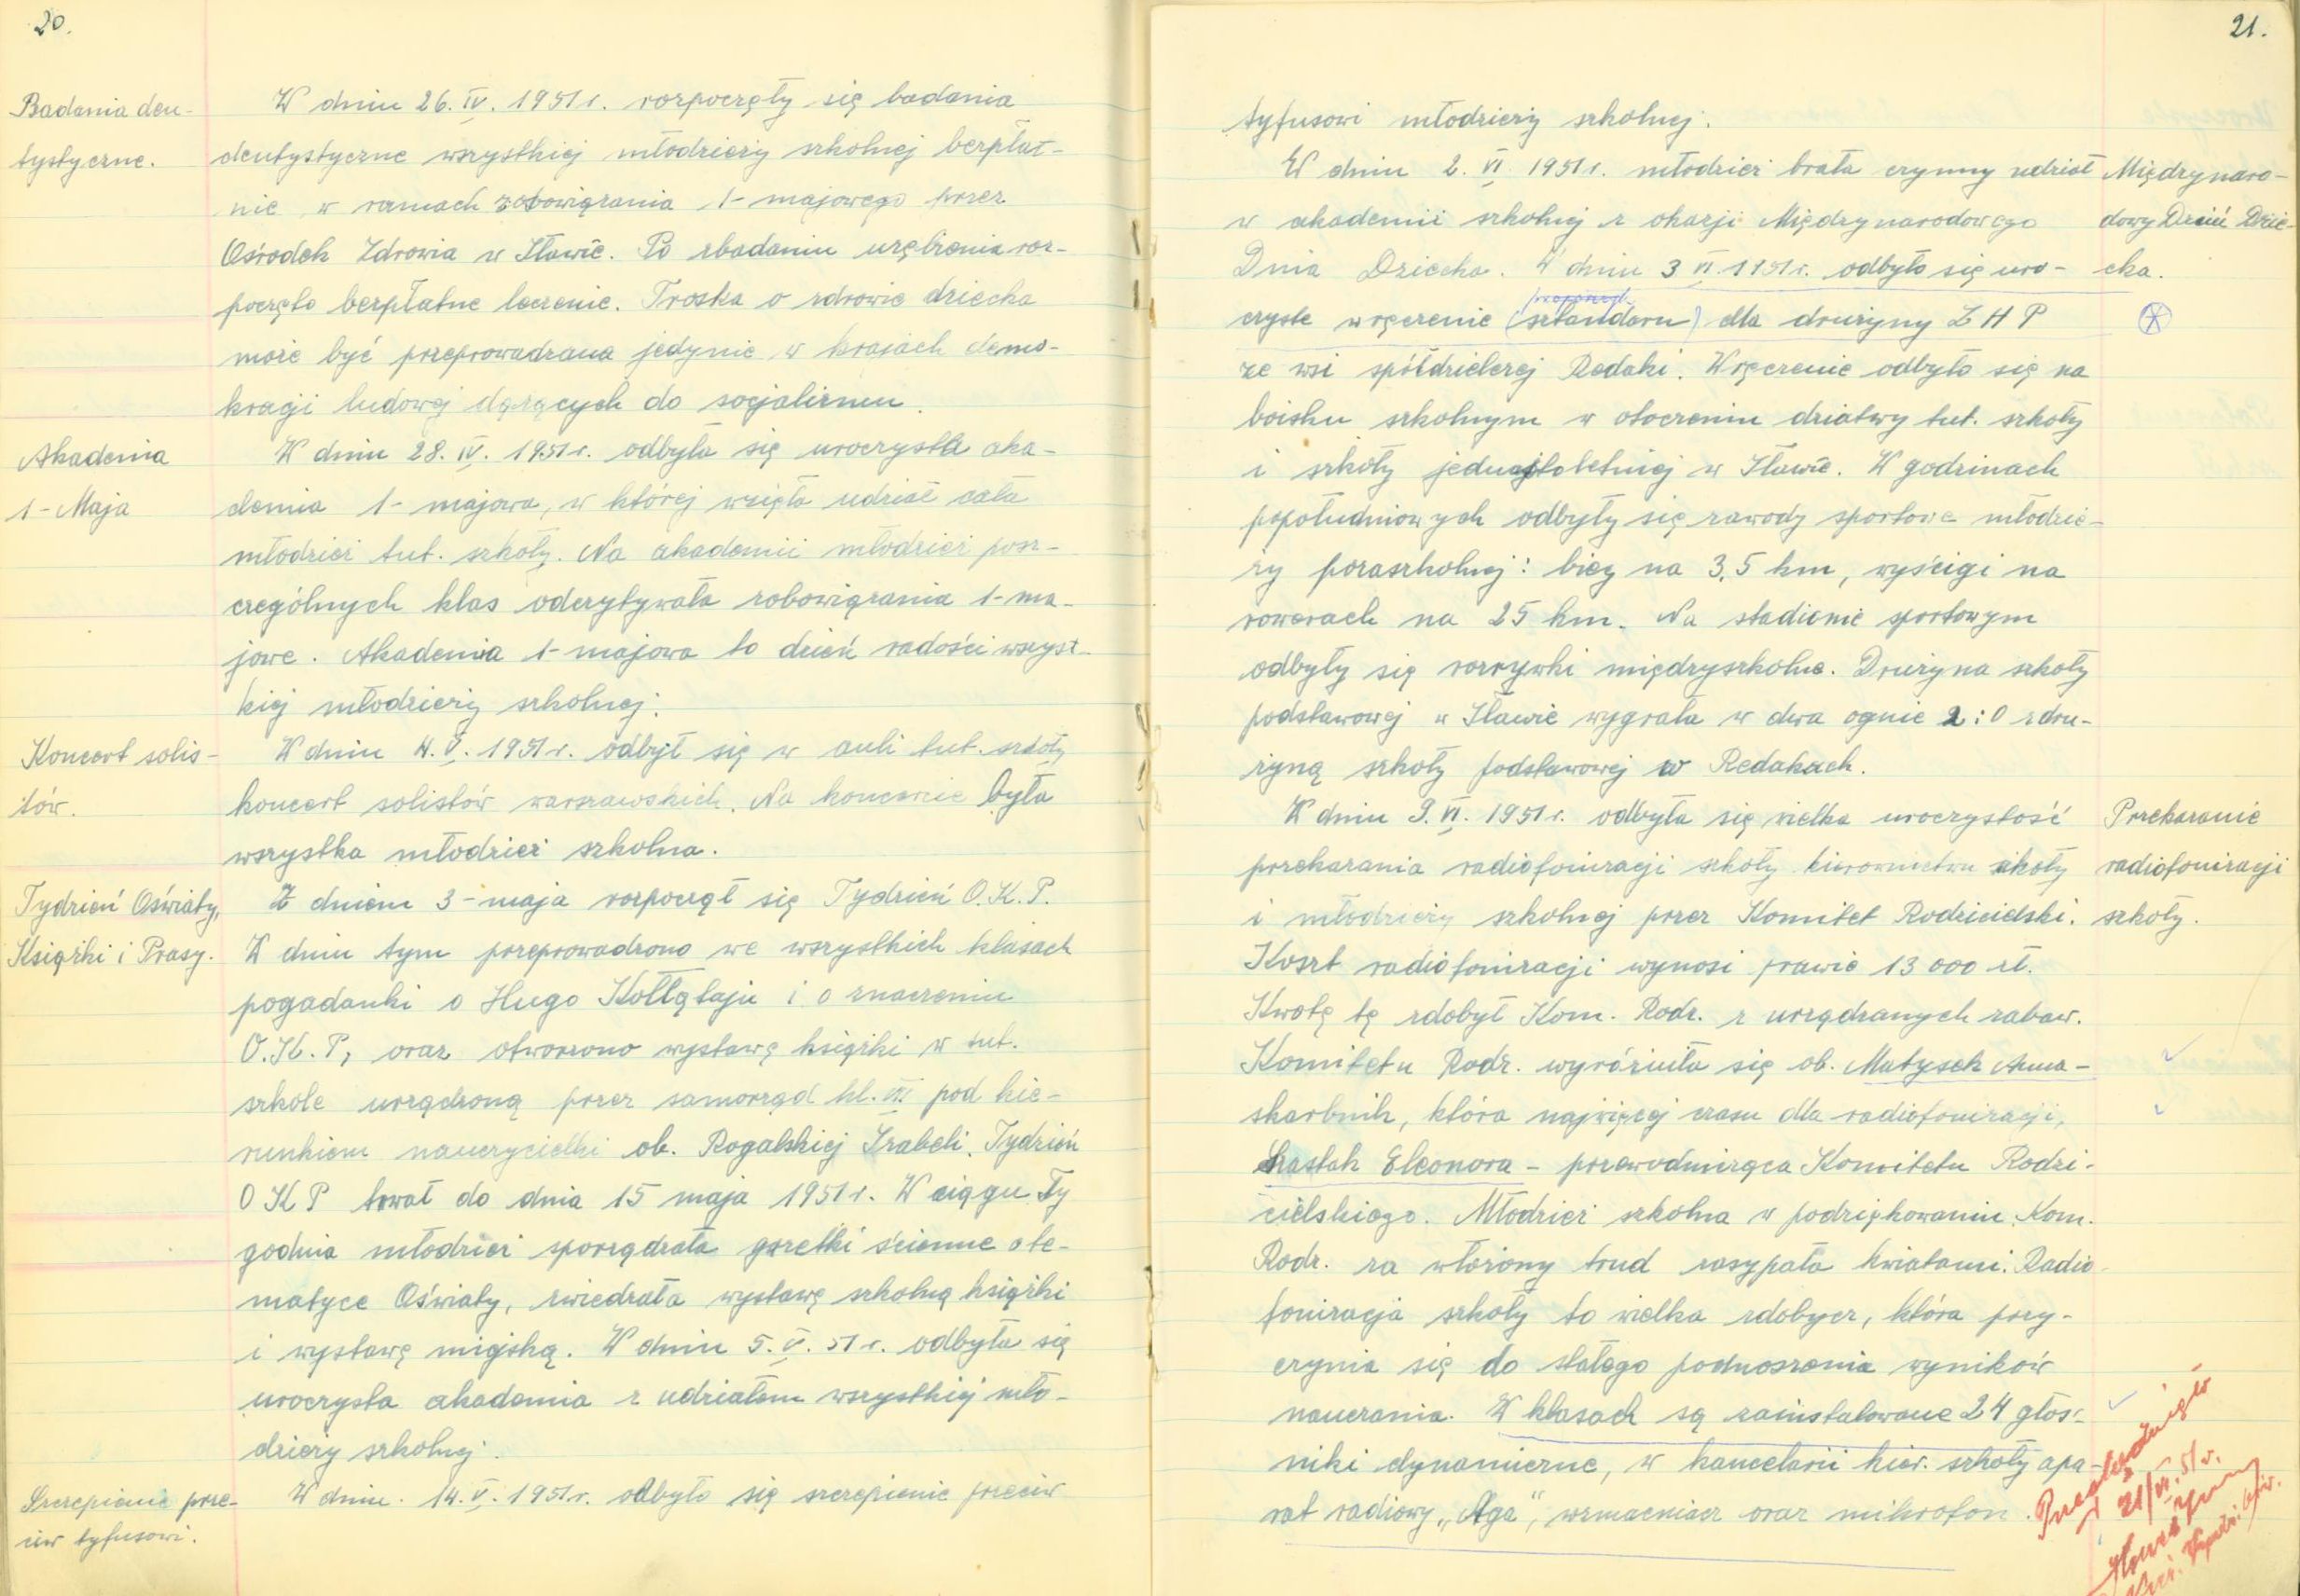 20.
Badania den-
tystyczne.
W dniu 26. IV. 1951 r. rozpoczęły się badania
dentystyczne wszystkiej młodzieży szkolnej bezpłat-
nie w ramach zobowiązania 1-majowego przez
Ośrodek Zdrowia w Iławie. Po zbadaniu uzębienia roz-
poczęto bezpłatne leczenie. Troska o zdrowie dziecka
może być przeprowadzana jedynie w krajach demo-
kracji ludowej dążących do socjalizmu.
Akademia
1-Maja
W dniu 28. IV. 1951 r. odbyła się uroczysta aka-
demia 1-majowa, w której wzięła udział cała
młodzież tut. szkoły. Na akademii młodzież posz-
czególnych klas odczytywała zobowiązania 1-ma-
jowe. Akademia 1-majowa to dzień radości wszyst-
kiej młodzieży szkolnej.
Koncert solis-
tów.
W dniu 4. V. 1951 r. odbył się w auli tut. szkoły
koncert solistów warszawskich. Na koncercie była
wszystka młodzież szkolna.
Tydzień Oświaty,
Książki i Prasy.
Z dniem 3-maja rozpoczął się Tydzień O.K.P.
W dniu tym przeprowadzono we wszystkich klasach
pogadanki o Hugo Kołłątaju i o znaczeniu
O.K.P, oraz otworzono wystawę książki w tut.
szkole urządzoną przez samorząd kl. VII pod kie-
runkiem nauczycielki ob. Rogalskiej Izabeli. Tydzień
O K P trwał do dnia 15 maja 1951 r. W ciągu Ty
godnia młodzież sporządzała gazetki ścienne o te-
matyce Oświaty, zwiedzała wystawę szkolną książki
i wystawę miejską. W dniu 5. V. 51 r. odbyła się
uroczysta akademia z udziałem wszystkiej mło-
dzieży szkolnej.
Szczepienie prze-
ciw tyfusowi.
W dniu. 14. V. 1951 r. odbyło się szczepienie przeciw
21.
tyfusowi młodzieży szkolnej.
W dniu 2. VI. 1951 r. młodzież brała czynny udział
Międzynaro-
dowy Dzień Dzie-
cka.
w akademii szkolnej z okazji Międzynarodowego
Dnia Dziecka. W dniu 3 VI 1951 r. odbyło się uro-
proporzyk
czyste wręczenie (sztandaru) dla drużyny Z H P
ze wsi spółdzielczej Redaki. Wręczenie odbyło się na
boisku szkolnym w otoczeniu dziatwy tut. szkoły
i szkoły jednastoletniej w Iławie. W godzinach
popołudniowych odbyły się zawody sportowe młodzie-
ży pozaszkolnej: bieg na 3,5 km, wyścigi na
rowerach na 25 km. Na stadionie sportowym
odbyły się rozrywki międzyszkolne. Drużyna szkoły
podstawowej w Iławie wygrała w dwa ognie 2:0 z dru-
żyną szkoły podstawowej w Redakach.
Przekazanie
radiofonizacji
szkoły.
W dniu 9. VI. 1951 r. odbyła się wielka uroczystość
przekazania radiofonizacji szkoły kierownictwu szkoły
i młodzieży szkolnej przez Komitet Rodzicielski.
Koszt radiofonizacji wynosi prawie 13 000 zł.
Kwotę tę zdobył Kom. Rodz. z urządzanych zabaw.
Komitetu Rodz. wyróżniła się ob. Matysek Anna-
skarbnik, która najwięcej czasu dla radiofonizacji,
Łastak Eleonora - przewodnicząca Komitetu Rodzi-
cielskiego. Młodzież szkolna w podziękowaniu Kom.
Rodz. za włożony trud zasypała kwiatami. Radio-
fonizacja szkoły to wielka zdobycz, która przy-
czynia się do stałego podnoszenia wyników
nauczania. W klasach są zainstalowane 24 głoś-
niki dynamiczne, w kancelarii kier. szkoły apa-
rat radiowy „Aga", wzmacniacz oraz mikrofon.
21/VI.51 r.